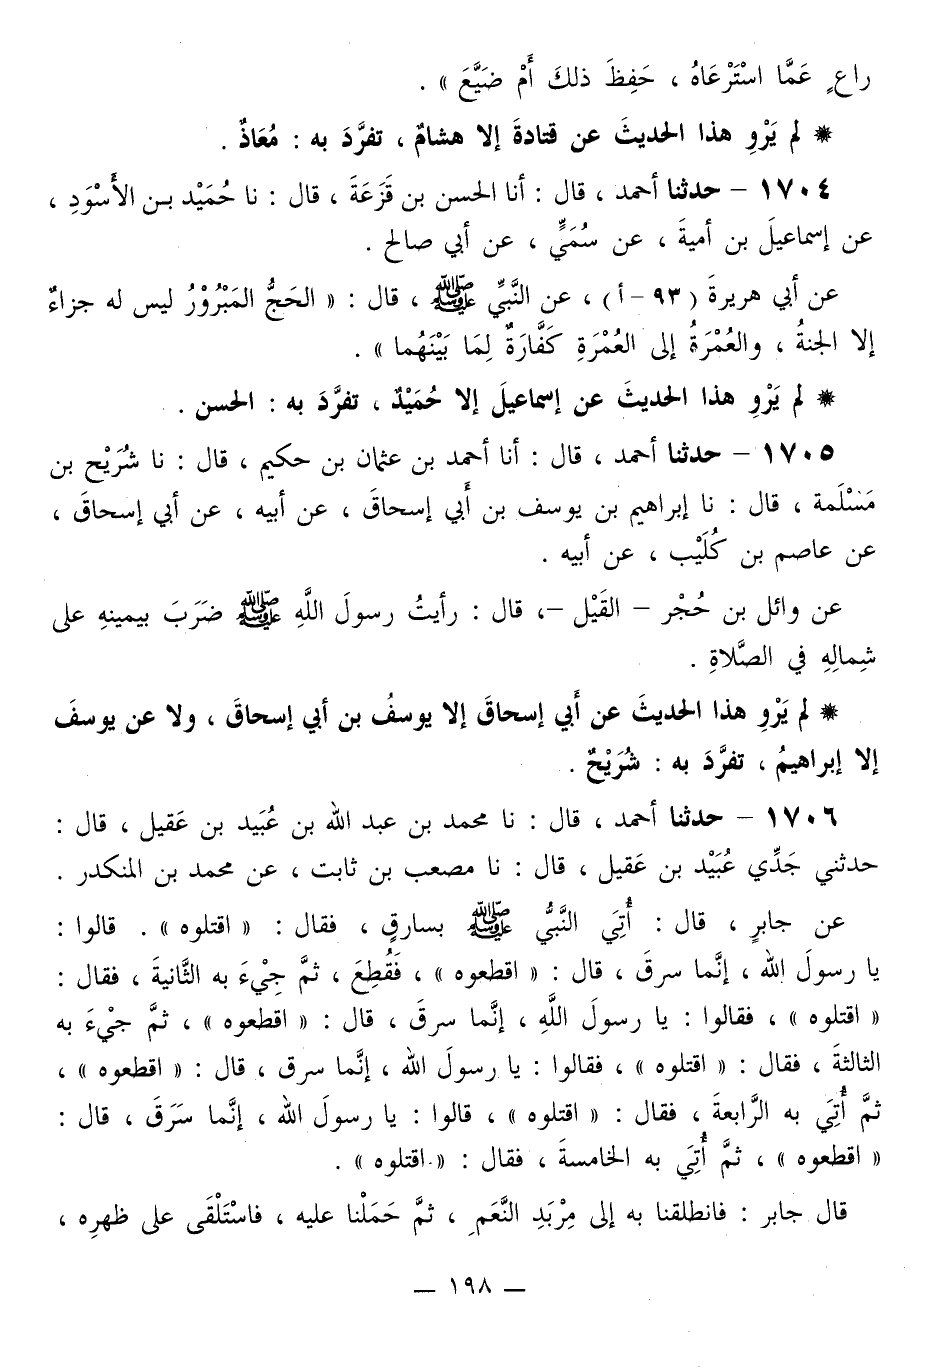 راعٍ عَمَّا اسْتَرْعَاهُ ، حَفِظَ ذلكَ أَمْ ضَيَّعَ » .
* لم يَرْوِ هذا الحديثَ عن قتادةَ إلا هشامٌ ، تفرَّدَ به : مُعَاذٌ .
١٧٠٤ – حدثنا أحمد ، قال : أنا الحسن بن قَزَعَةَ ، قال : نا حُمَيْد بـن الأَسْوَدِ ،
عن إسماعيلَ بن أميةَ ، عن سُمَيٍّ ، عن أبي صالح .
عن أبي هريرةَ ( ٩٣ – أ ) ، عن النَّبيِّ ﷺ ، قال : « الحَجُّ المَبْرُوْرُ ليس له جزاءٌ
إلا الجنةُ ، والعُمْرَةُ إلى العُمْرَةِ كَفَّارَةٌ لِمَا بَيْنَهُما » .
* لم يَرْوِ هذا الحديثَ عن إسماعيلَ إلا حُمَيْدٌ ، تفرَّدَ به : الحسن .
١٧٠٥ – حدثنا أحمد ، قال : أنا أحمد بن عثمان بن حكيم ، قال : نا شُرَيْح بن
مَسْلَمة ، قال : نا إبراهيم بن يوسف بن أَبي إسحاقَ ، عن أبيه ، عن أبي إسحاقَ ،
عن عاصم بن كُلَيْب ، عن أبيه .
عن وائل بن حُجْر – القَيْل –، قال : رأيتُ رسولَ اللَّهِ ﷺ ضَرَبَ بيمينهِ على
شِمالِهِ في الصَّلاةِ .
* لم يَرْوِ هذا الحديثَ عن أَبي إسحاقَ إلا يوسفُ بن أبي إسحاقَ ، ولا عن يوسفَ
إلا إبراهيمُ ، تفرَّدَ به : شُرَيْحٌ .
١٧٠٦ – حدثنا أحمد ، قال : نا محمد بن عبد الله بن عُبَيد بن عَقيل ، قال :
حدثني جَدِّي عُبَيْد بن عَقيل ، قال : نا مصعب بن ثابت ، عن محمد بن المنكدر .
عن جابرٍ ، قال : أُتِيَ النَّبيُّ ﷺ بسارقٍ ، فقال : « اقتلوه » . قالوا :
يا رسولَ الله ، إنَّما سرقَ ، قال : « اقطعوه » ، فَقُطِعَ ، ثمَّ جِيْءَ به الثَّانيةَ ، فقال :
« اقتلوه » ، فقالوا : يا رسولَ اللَّهِ ، إنَّما سرقَ ، قال : « اقطعوه » ، ثمَّ جيْءَ به
الثالثةَ ، فقال : « اقتلوه » ، فقالوا : يا رسولَ الله ، إنَّما سرق ، قال : « اقطعوه » ،
ثمَّ أُتِيَ به الرَّابعةَ ، فقال : « اقتلوه » ، قالوا : يا رسولَ الله ، إنَّما سَرَقَ ، قال :
« اقطعوه » ، ثمَّ أُتِيَ به الخامسةَ ، فقال : « اقتلوه » .
قال جابر : فانطلقنا به إلى مِرْبَدِ النَّعَمِ ، ثمَّ حَمَلْنا عليه ، فاسْتَلْقَى على ظهرِه ،
– ١٩٨ –